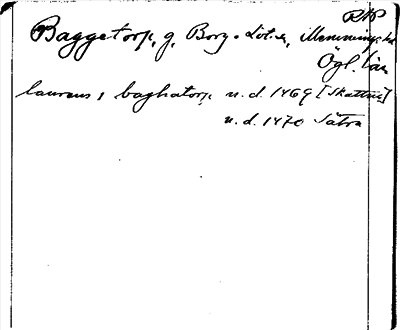 RAP
Baggetorp, g, Borg o. Löt sn, Memmings hd
Ögl. län
laurens i baghatorp u.d. 1469 [Skattus]
u.d. 1470 Sätra